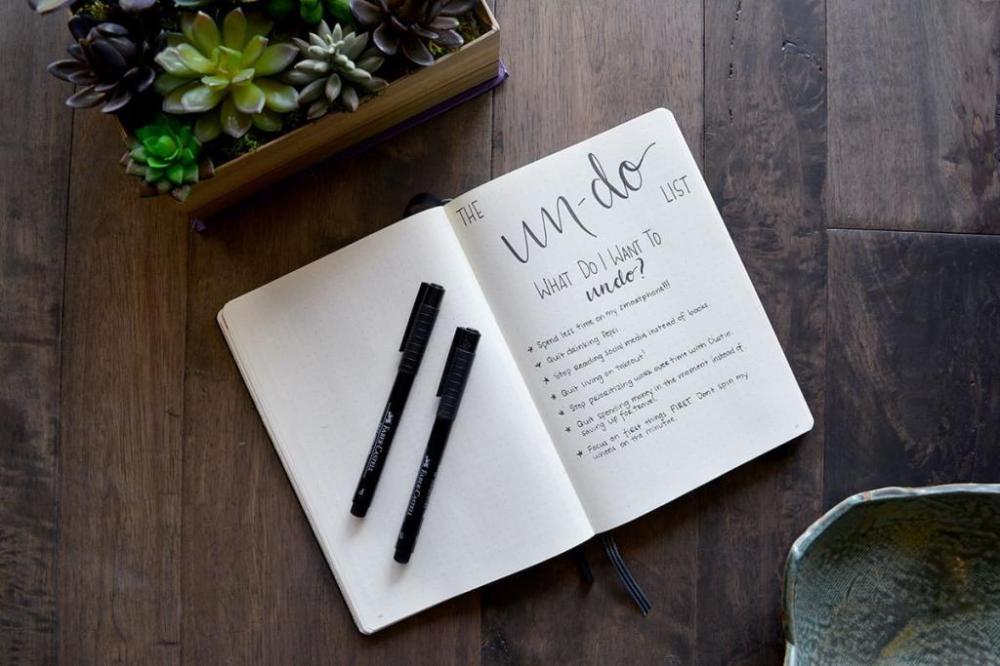 THE un-do LIST
WHAT DO I WANT TO
undo?
* Spend less time on my smartphone!!!
* Quit drinking Pepsi.
* Stop reading social media instead of books.
* Quit living on takeout!
* Stop prioritizing work over time with Dustin.
* Quit spending money in the moment instead of
saving up for travel.
* Focus on first things FIRST. Don't spin my
wheels on the minutiae.
FABER-CASTELL
FABER-CASTELL